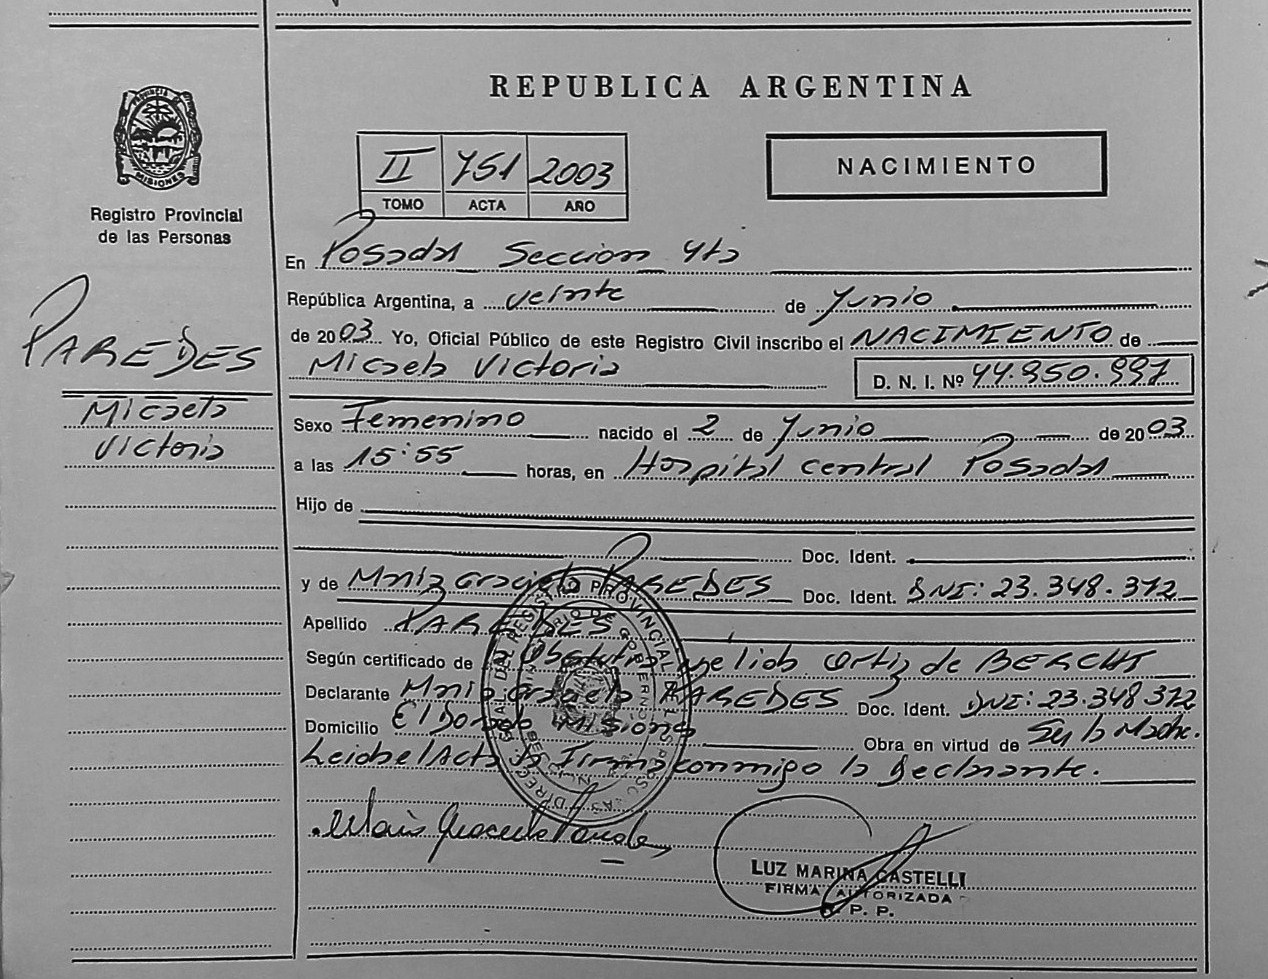 REPUBLICA ARGENTINA
PROVINCIA DE
MISIONES
Registro Provincial
de las Personas
II 751 2003
TOMO ACTA AÑO
NACIMIENTO
En Posadas Seccion 4ta
República Argentina, a veinte de Junio
de 2003 Yo, Oficial Público de este Registro Civil inscribo el NACIMIENTO de
Micaela Victoria D. N. I. Nº 44.950.997
PAREDES
Micaela
Victoria
Sexo Femenino nacido el 2 de Junio de 2003
a las 15:55 horas, en Hospital central Posadas
Hijo de
Doc. Ident.
y de Maria Graciela PAREDES Doc. Ident. DNI: 23.348.312
Apellido PAREDES
Según certificado de Obstetra Ortiz de
Declarante Maria Graciela PAREDES Doc. Ident. DNI: 23.348.312
Domicilio El Dorado Misiones Obra en virtud de Ser la Madre.
Leida el Acta la Firma conmigo la Declarante.
LUZ MARINA CASTELLI
FIRMA AUTORIZADA
R. P. P.